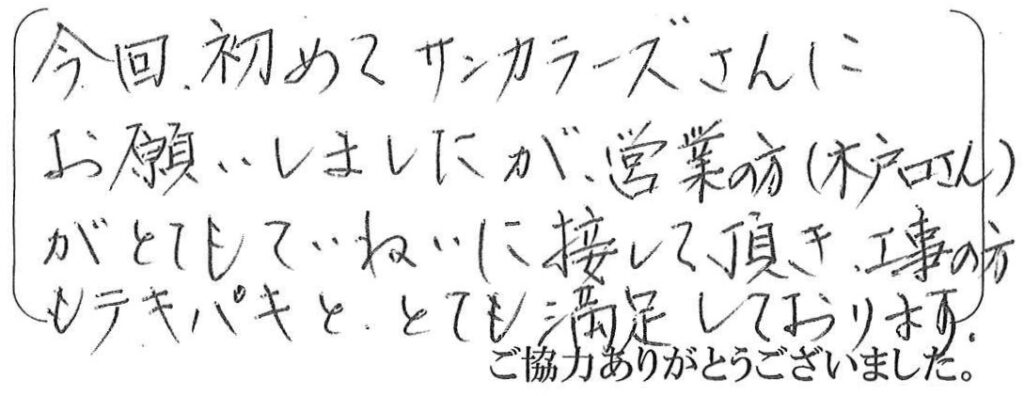 今回、初めてサンカラーズさんに
お願いしましたが、営業の方(木戸口さん)
がとてもていねいに接して頂き、工事の方
もテキパキと、とても満足しております。
ご協力ありがとうございました。